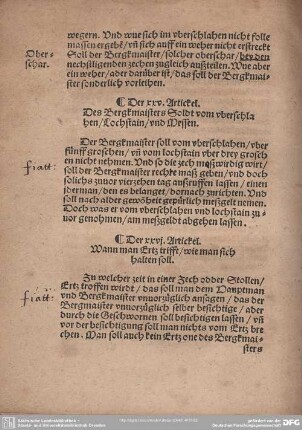 wegern. Und wue sich im vberschlahen nicht solle
massen ergebt/ vñ sich auff ein weher nicht erstreckt
Ober-
schar.
Soll der Bergkmaister/ solcher oberschar/ bey den
nechstligenden zechen zugleich außteilen. Wue aber
ein weher/ ader darüber ist/ das soll der Bergkmai-
ster sonderlich vorleihen.
¶ Der xxv. Artickel.
Des Bergkmaisters Soldt vom vberschla
hen/ Lochstain/ vnd Messen.
Der Bergkmaister soll vom vberschlahen/ vber
fünff groschen/ vñ vom lochstain vber drey grosch
en nicht nehmen. Und so die zech meßwirdig wirt/
fiatt:
soll der Bergkmaister rechte maß geben/ vnd doch
solichs zuuor vierzehen tag außruffen lassen/ einen
jderman/ den es belanget/ dornach zurichten. Und
soll nach alder gewöheit gepürlich meßgelt nemen.
Doch was er vom vberschlahen vnd lochstain zu-
uor genohmen/ am meßgeldt abgehen lassen.
¶ Der xxvj. Artickel.
Wann man Ertz trifft/ wie man sich
halten soll.
Zu welcher zeit in einer Zech odder Stollen/
fiatt:
Ertz troffen wirdt/ das soll man dem Hauptman
vnd Bergkmaister vnuorzüglich ansagen/ das der
Bergkmaister vnuorzüglich selber besichtige/ ader
durch die Geschwornen soll besichtigen lassen/ vñ
vor der besichtigung soll man nichts vom Ertz bre
chen. Man soll auch kein Ertz one des Bergkmai-
sters